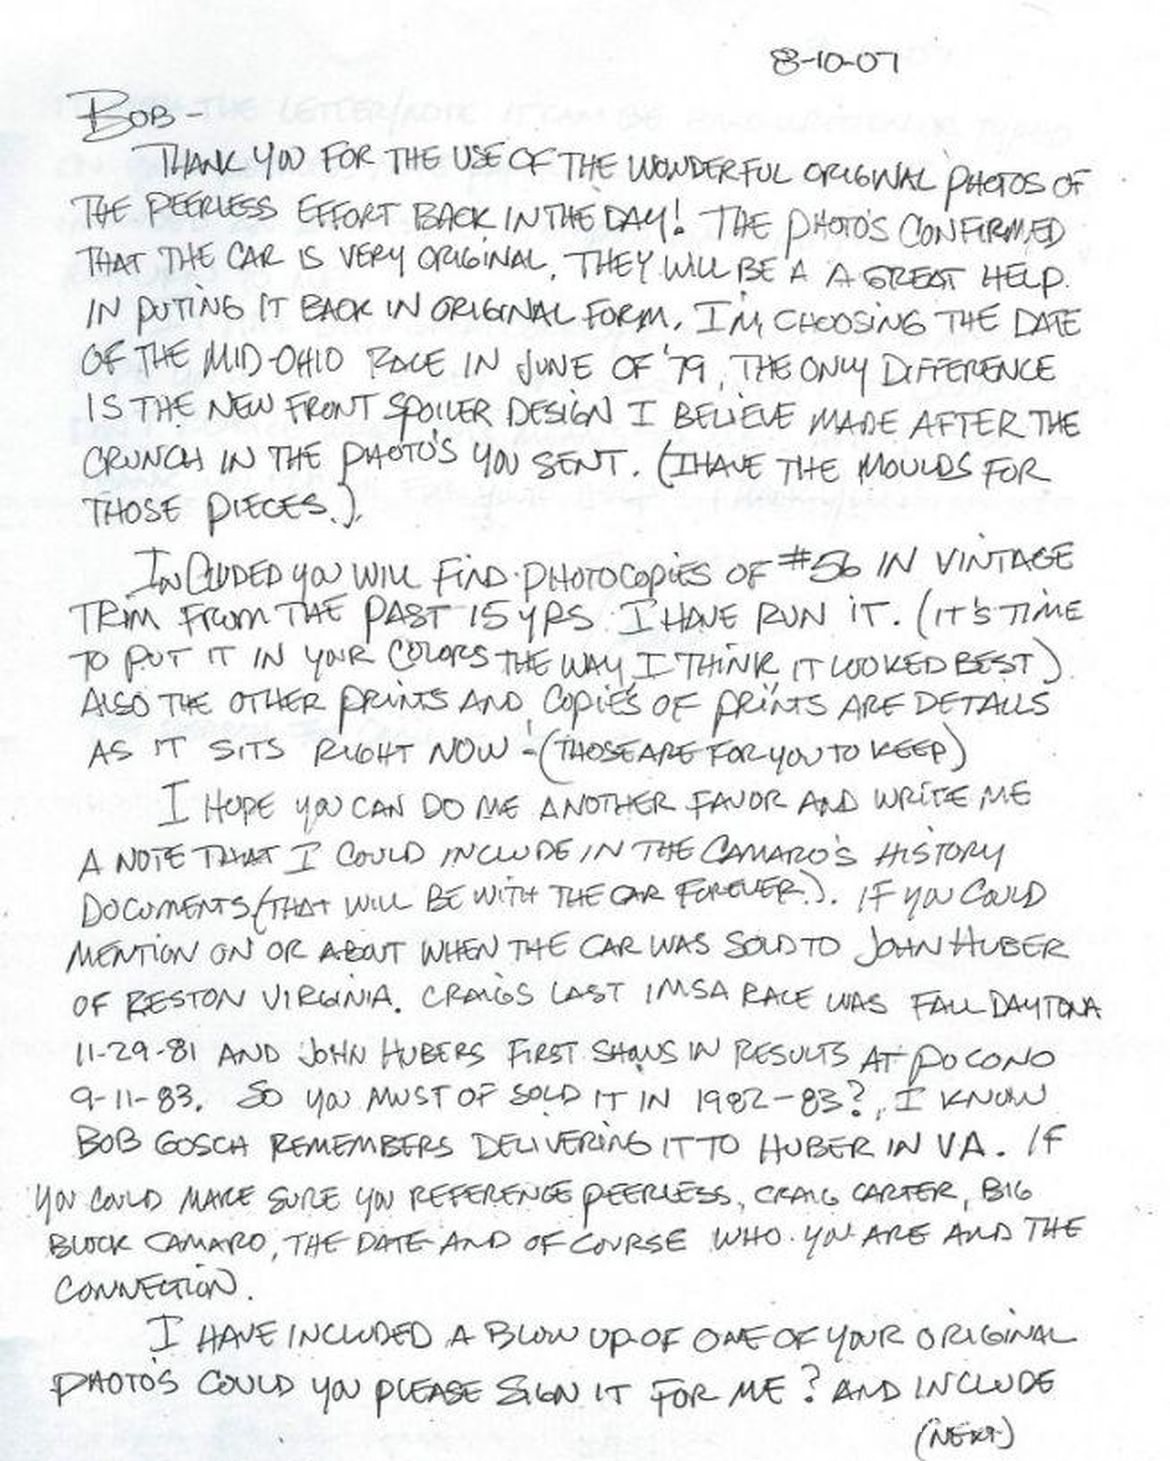 8-10-07
BOB-
THANK YOU FOR THE USE OF THE WONDERFUL ORIGINAL PHOTOS OF
THE PEERLESS EFFORT BACK IN THE DAY! THE PHOTO'S CONFIRMED
THAT THE CAR IS VERY ORIGINAL. THEY WILL BE A A GREAT HELP
IN PUTING IT BACK IN ORIGINAL FORM. I'M CHOOSING THE DATE
OF THE MID-OHIO RACE IN JUNE OF '79, THE ONLY DIFFERENCE
IS THE NEW FRONT SPOILER DESIGN I BELIEVE MADE AFTER THE
CRUNCH IN THE PHOTO'S YOU SENT. (I HAVE THE MOULDS FOR
THOSE PIECES.).
INCLUDED YOU WILL FIND PHOTOCOPIES OF #56 IN VINTAGE
TRIM FROM THE PAST 15 YRS I HAVE RUN IT. (IT'S TIME
TO PUT IT IN YOUR COLORS THE WAY I THINK IT LOOKED BEST)
ALSO THE OTHER PRINTS AND COPIES OF PRINTS ARE DETAILS
AS IT SITS RIGHT NOW - (THOSE ARE FOR YOU TO KEEP)
I HOPE YOU CAN DO ME ANOTHER FAVOR AND WRITE ME
A NOTE THAT I COULD INCLUDE IN THE CAMARO'S HISTORY
DOCUMENTS (THAT WILL BE WITH THE CAR FOREVER.). IF YOU COULD
MENTION ON OR ABOUT WHEN THE CAR WAS SOLD TO JOHN HUBER
OF RESTON VIRGINIA. CRAIGS LAST IMSA RACE WAS FALL DAYTONA
11-29-81 AND JOHN HUBERS FIRST SHOWS IN RESULTS AT POCONO
9-11-83. SO YOU MUST OF SOLD IT IN 1982-83?, I KNOW
BOB GOSCH REMEMBERS DELIVERING IT TO HUBER IN VA. IF
YOU COULD MAKE SURE YOU REFERENCE PEERLESS, CRAIG CARTER, BIG
BLOCK CAMARO, THE DATE AND OF COURSE WHO YOU ARE AND THE
CONNECTION.
I HAVE INCLUDED A BLOW UP OF ONE OF YOUR ORIGINAL
PHOTO'S COULD YOU PLEASE SIGN IT FOR ME? AND INCLUDE
(NEXT)